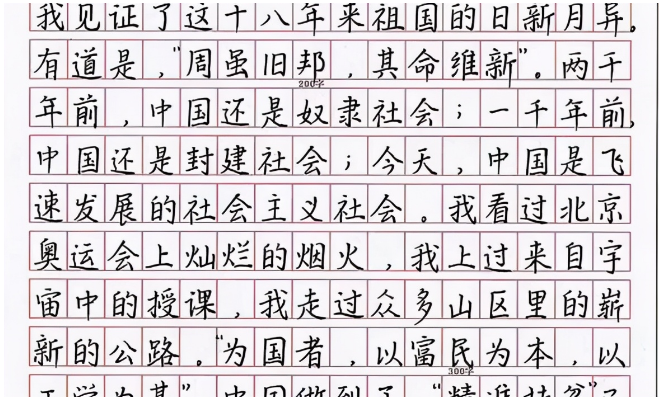 我见证了这十八年来祖国的日新月异。
有道是，“周虽旧邦，其命维新”。两千
200字
年前，中国还是奴隶社会；一千年前，
中国还是封建社会；今天，中国是飞
速发展的社会主义社会。我看过北京
奥运会上灿烂的烟火，我上过来自宇
宙中的授课，我走过众多山区里的崭
新的公路。“为国者，以富民为本，以
300字
正学为基”，中国做到了，“精准扶贫”